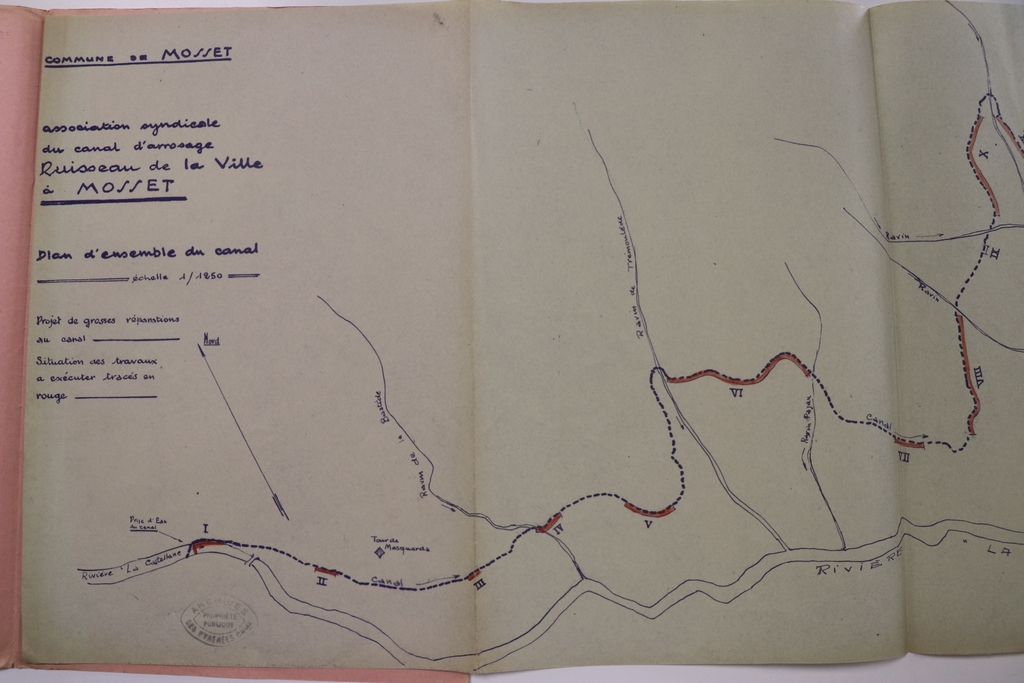 COMMUNE DE MOSSET
association syndicale
du canal d'arrosage
Ruisseau de la Ville
à MOSSET
Plan d'ensemble du canal
échelle 1/1250
Projet de grosses réparations
au canal
Situation des travaux
a exécuter tracés en
rouge
Nord
Prise d'Eau
du canal
I
Rivière "La Castellane
II
Tour de
Masquarda
Canal
III
Ravin de la Bastide
IV
V
Ravin de Tremoulène
VI
Ravin
Canal
VII
VIII
Ravin
Ravin
IX
X
RIVIÈRE " LA
ARCHIVES
PROPRIÉTÉ
PUBLIQUE
DES PYRÉNÉES